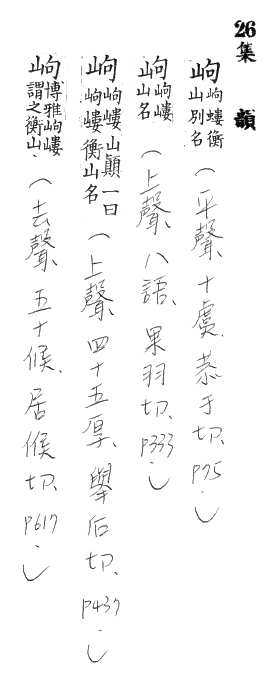 26 集韻
岣 岣嶁衡山別名（平聲、十虞、恭于切、P75。）
岣 岣嶁山名（上聲、八語、果羽切、P333。）
岣 岣嶁山顚一曰岣嶁衡山名（上聲、四十五厚、舉后切、P437。）
岣 博雅岣嶁謂之衡山、（去聲、五十候、居候切、P617。）